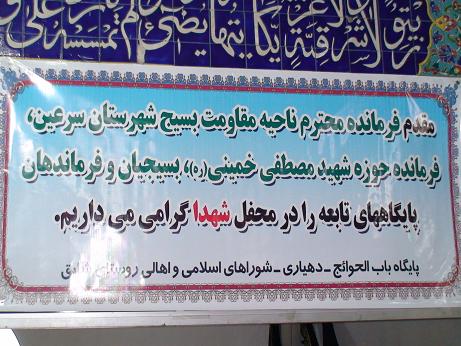 زيتونة لا شرقية
يكاد زيتها يضيء
تمسسه
مقدم فرمانده محترم ناحیه مقاومت بسیج شهرستان سرعین،
فرمانده حوزه شهید مصطفی خمینی (ره)، بسیجیان و فرماندهان
پایگاههای تابعه را در محفل شهدا گرامی می داریم.
پایگاه باب الحوائج - دهیاری - شوراهای اسلامی و اهالی روستای